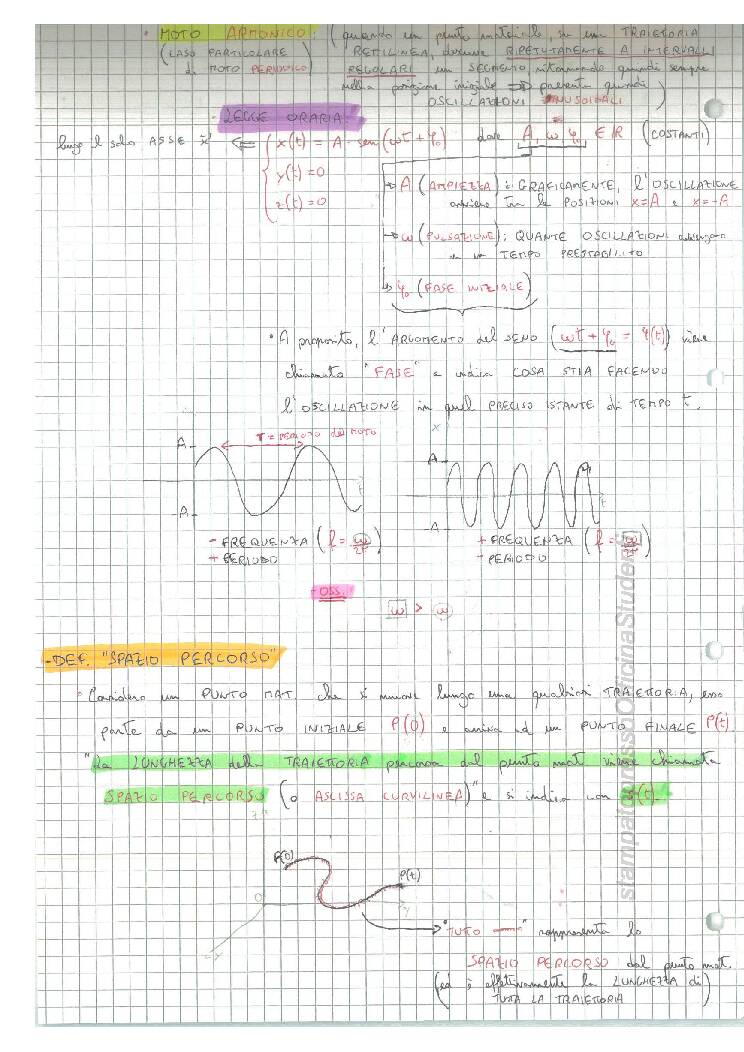 • MOTO ARMONICO: (quando un punto materiale, su una TRAIETTORIA
(CASO PARTICOLARE RETTILINEA, descrive RIPETUTAMENTE A INTERVALLI
di MOTO PERIODICO) REGOLARI un SEGMENTO ritornando quindi sempre
nella posizione iniziale ⇒ presenta quindi
OSCILLAZIONI SINUSOIDALI)
- LEGGE ORARIA:
lungo il solo ASSE x ⇐ { x(t) = A · sen(ωt + φ₀) dove A, ω, φ₀ ∈ ℝ (COSTANTI)
y(t) = 0
z(t) = 0
→ A (AMPIEZZA): GRAFICAMENTE, l'OSCILLAZIONE
avviene tra le POSIZIONI x=A e x=-A
→ ω (PULSAZIONE): QUANTE OSCILLAZIONI avvengono
in un TEMPO PRESTABILITO
→ φ₀ (FASE INIZIALE)
• A proposito, l'ARGOMENTO del SENO (ωt + φ₀ = φ(t)) viene
chiamato "FASE" e indica COSA STIA FACENDO
l'OSCILLAZIONE in quel PRECISO ISTANTE di TEMPO t.
T = PERIODO del MOTO
x
A
A
t
t
-A
-A
- FREQUENZA (f = ω/2π) + FREQUENZA (f = ω/2π)
+ PERIODO - PERIODO
- OSS.
ω > ω
- DEF. "SPAZIO PERCORSO"
• Considero un PUNTO MAT. che si muove lungo una qualsiasi TRAIETTORIA, esso
parte da un PUNTO INIZIALE P(0) e arriva ad un PUNTO FINALE P(t).
"La LUNGHEZZA della TRAIETTORIA percorsa dal punto mat viene chiamata
SPAZIO PERCORSO (o ASCISSA CURVILINEA)" e si indica con s(t).
P(0)
P(t)
O
"TUTTO —" rappresenta lo
SPAZIO PERCORSO dal punto mat.
(ed è effettivamente la LUNGHEZZA di
TUTTA LA TRAIETTORIA)
stampatopressoOfficinaStudenti